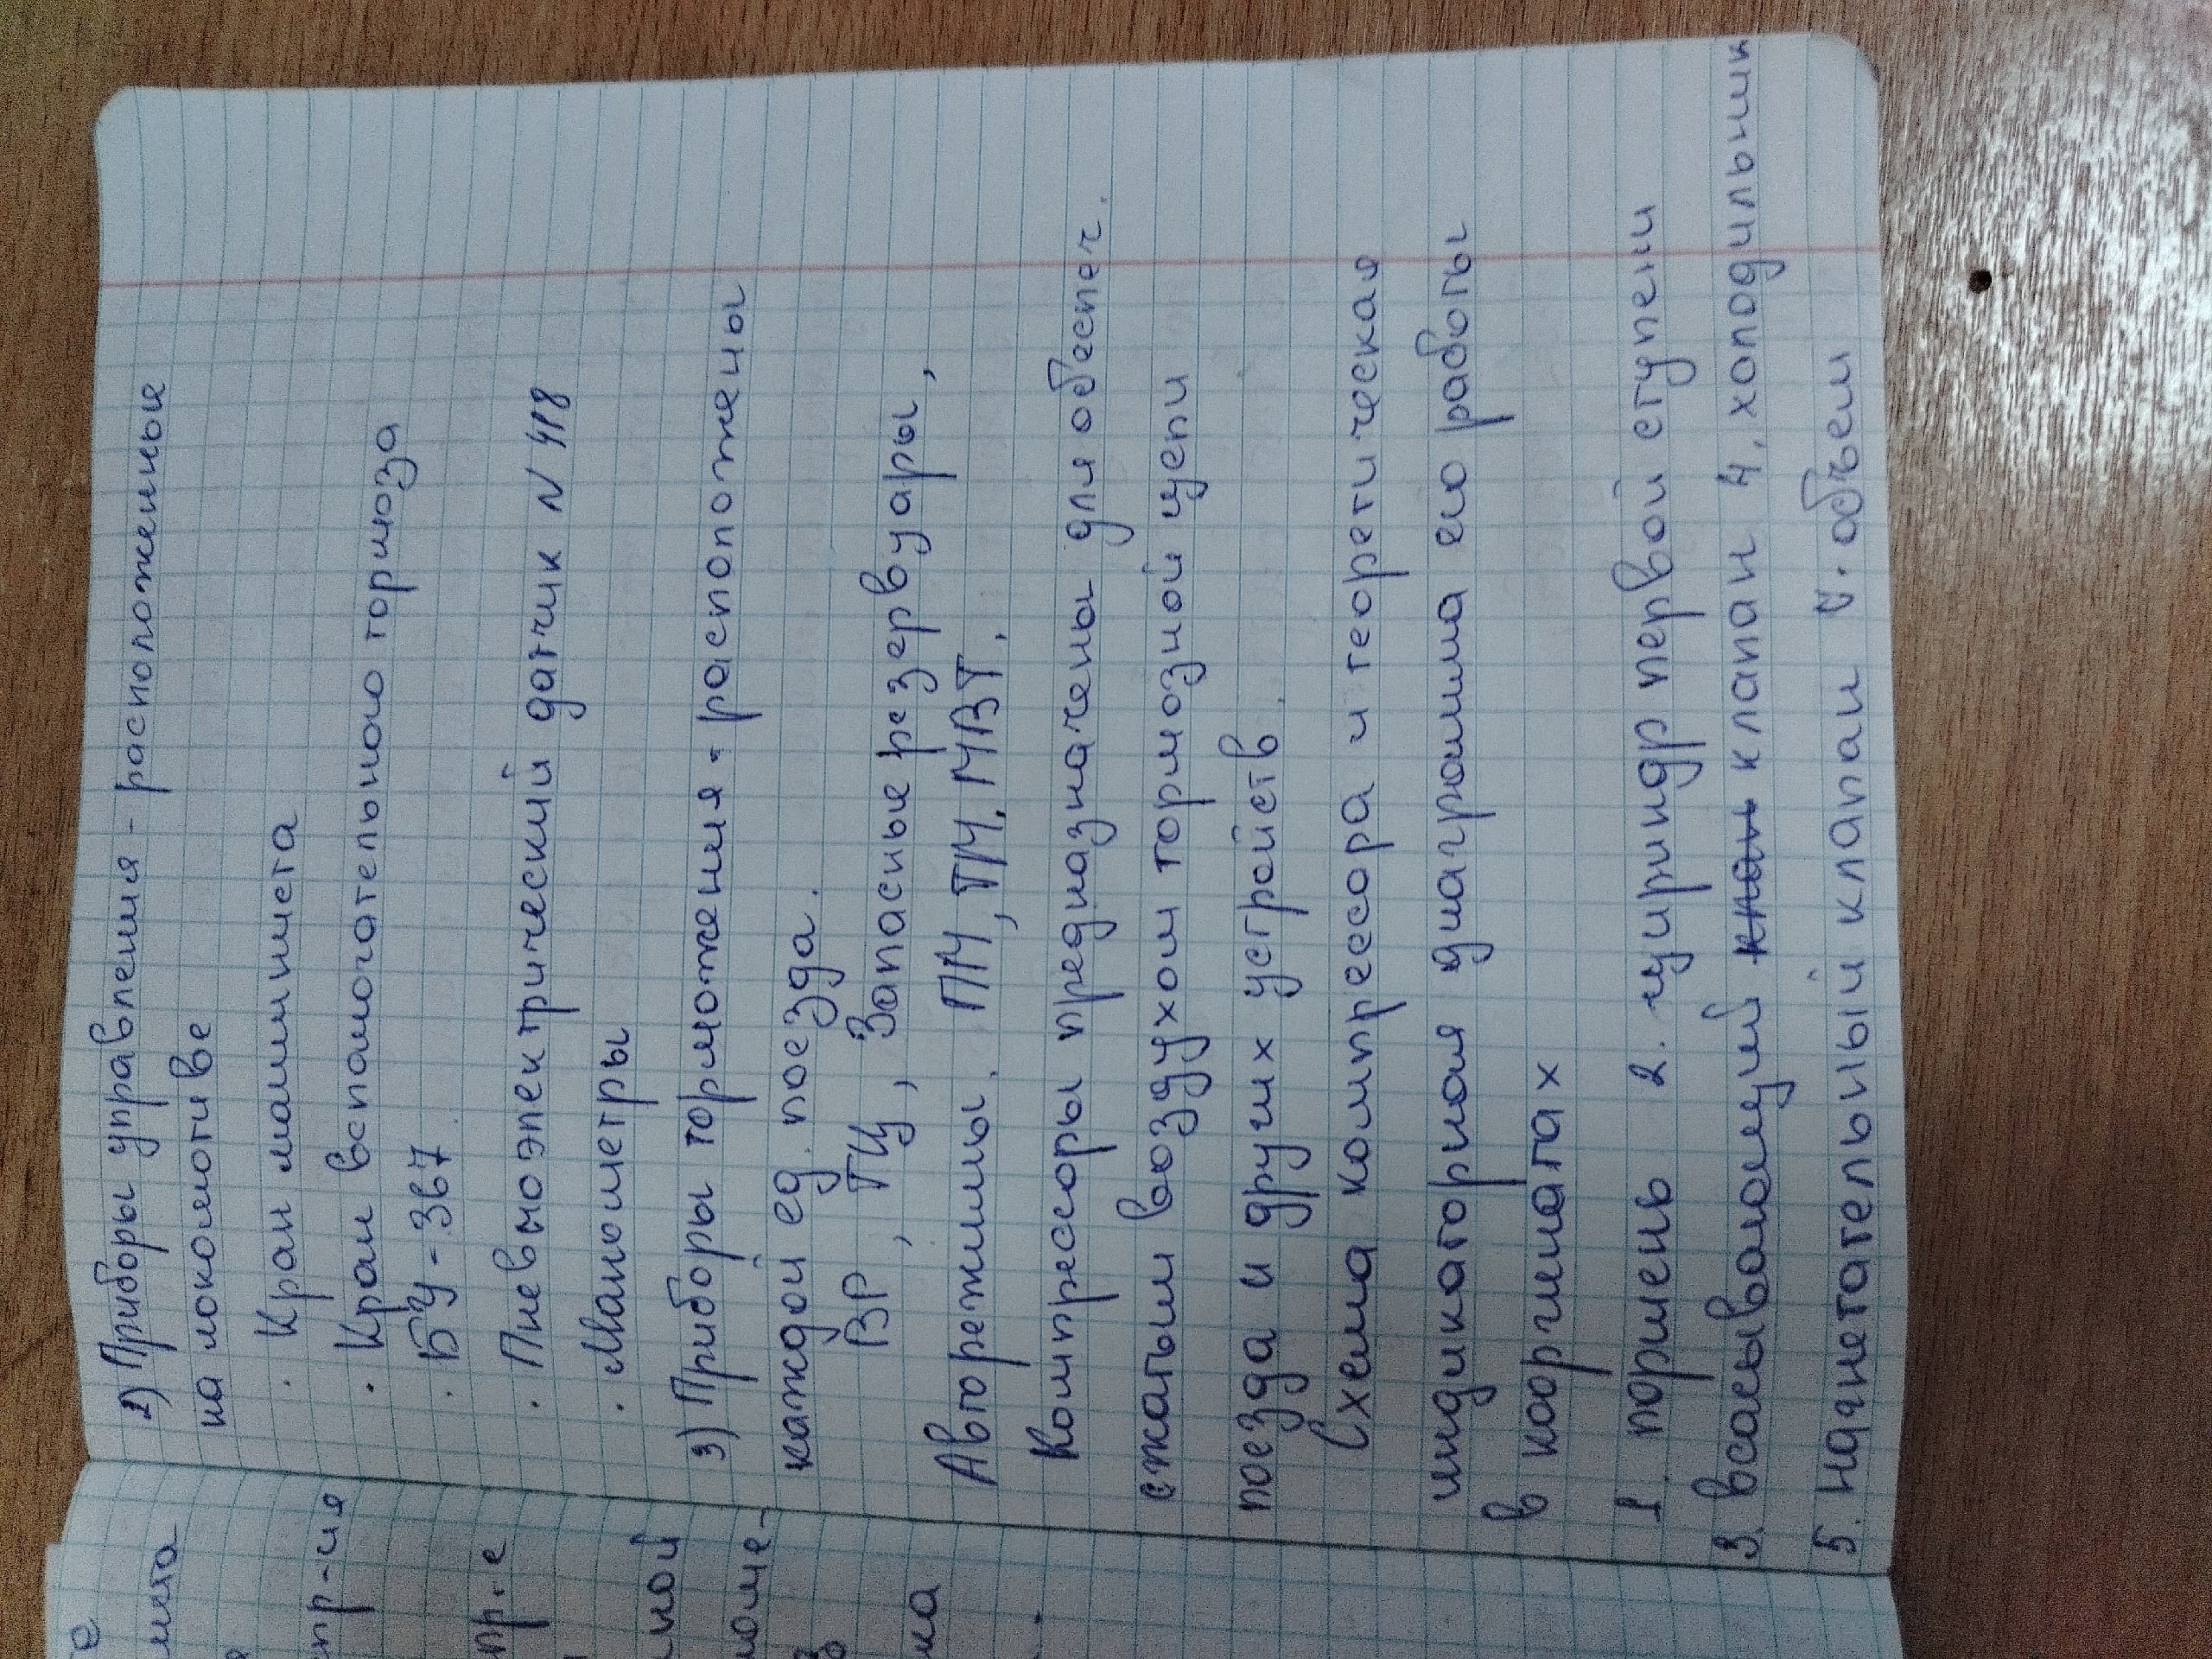 2) Приборы управления - расположенные
на локомотиве
· Кран машиниста
· Кран вспомогательного тормоза
· БУ-367
· Пневмоэлектрический датчик N 418
· Манометры
3) Приборы торможения - расположены
каждой ед. поезда.
ВР, ТЦ, Запасные резервуары,
Авторежимы. ПМ, ТМ, МВТ.
Компрессоры предназначены для обеспеч.
сжатым воздухом тормозной цепи
поезда и других устройств.
Схема компрессора и теоретическая
индикаторная диаграмма его работы
в координатах
1. поршень 2. цилиндр первой ступени
3. всасывающий клапан 4. холодильник
5. нагнетательный клапан V. объем
е
пр-ия
пр.е
ной
ка